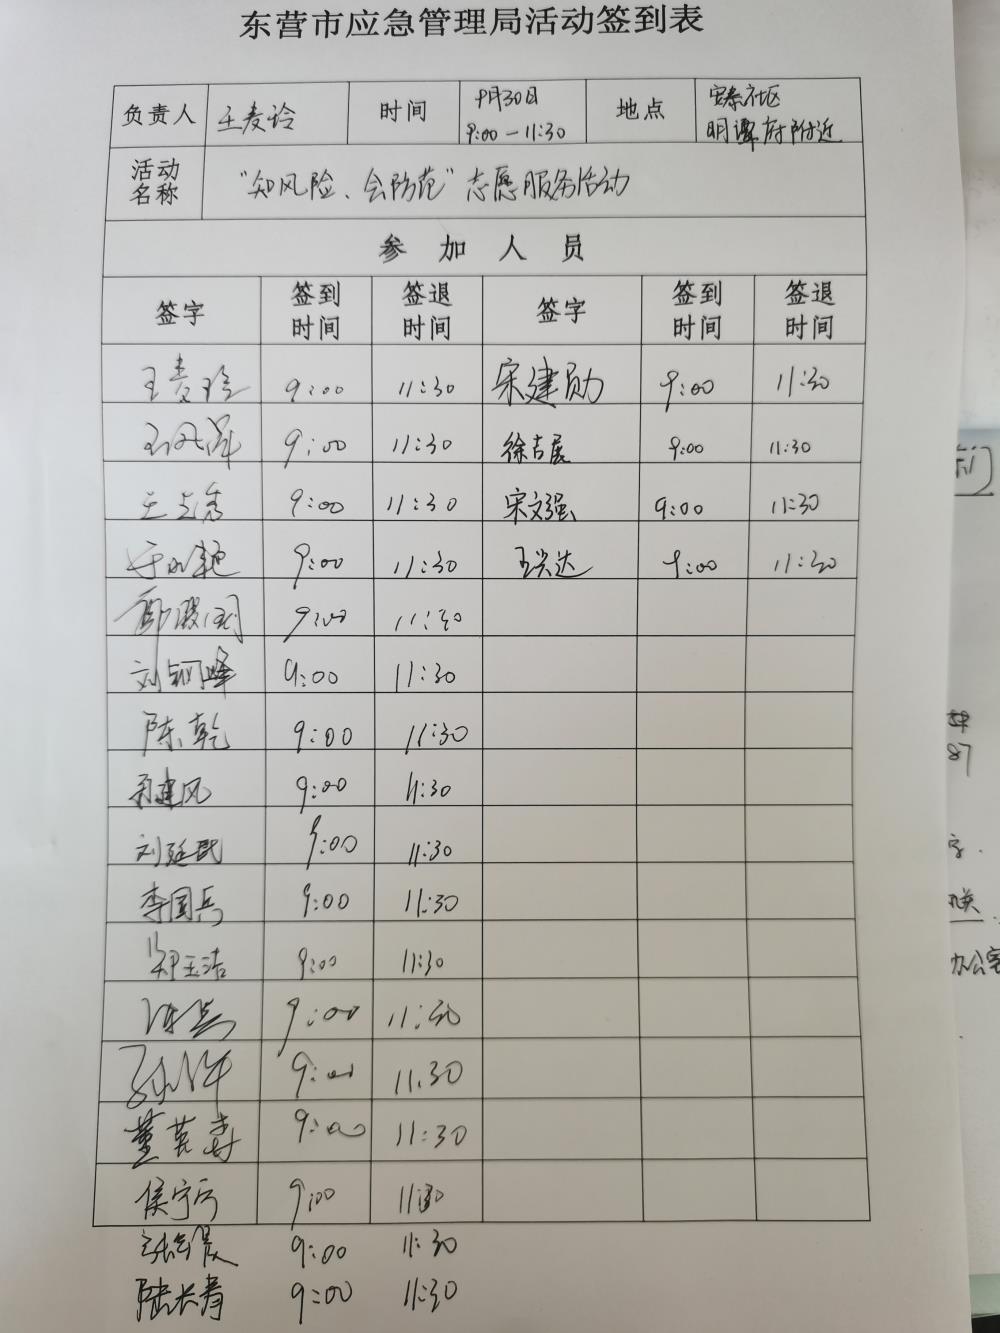 东营市应急管理局活动签到表
负责人 王麦玲 时间 9月30日 9:00-11:30 地点 安泰社区 明潭府附近
活动名称 “知风险、会防范”志愿服务活动
参加人员
签字 签到时间 签退时间 签字 签到时间 签退时间
王麦玲 9:00 11:30 宋建勋 9:00 11:30
9:00 11:30 徐吉展 9:00 11:30
9:00 11:30 宋文强 9:00 11:30
9:00 11:30 王兴达 9:00 11:30
9:00 11:30
9:00 11:30
陈乾 9:00 11:30
建风 9:00 11:30
刘廷民 9:00 11:30
李国兵 9:00 11:30
郑玉洁 9:00 11:30
9:00 11:30
9:00 11:30
董 9:00 11:30
侯宁 9:00 11:30
9:00 11:30
陆长青 9:00 11:30
87
办公室